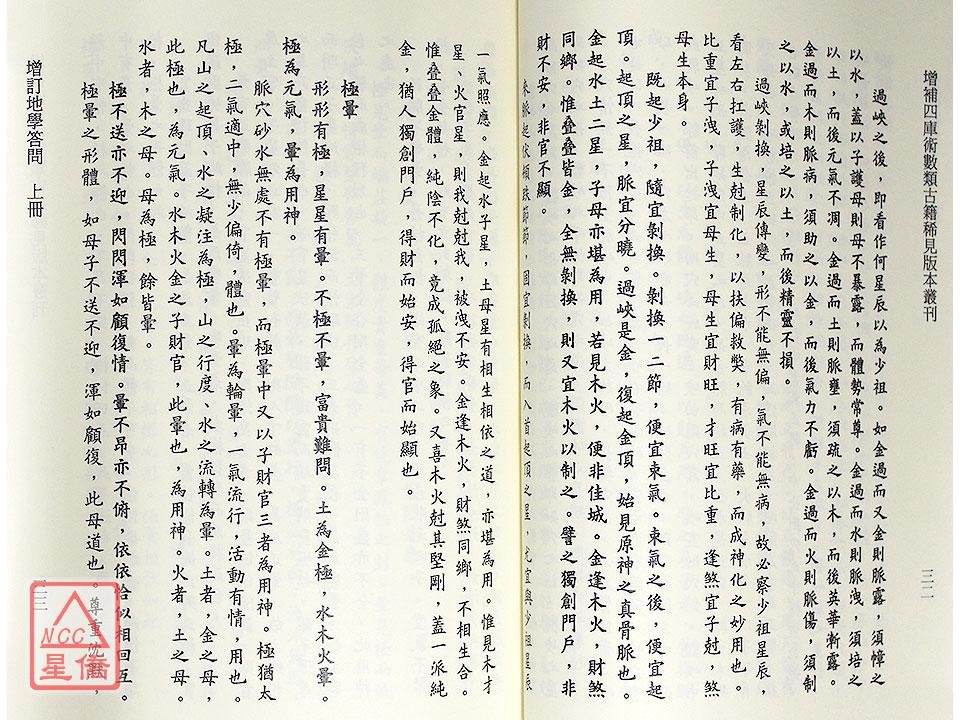 增補四庫術數類古籍稀見版本叢刊
三二
過峽之後，即看作何星辰以為少祖。如金過而又金則脈露，須幛之
以水，蓋以子護母則母不暴露，而體勢常尊。金過而水則脈洩，須培之
以土，而後元氣不凋。金過而土則脈壅，須疏之以木，而後英華漸露。
金過而木則脈病，須助之以金，而後氣力不虧。金過而火則脈傷，須制
之以水，或培之以土，而後精靈不損。
過峽剝換，星辰傳變，形不能無偏，氣不能無病，故必察少祖星辰，
看左右扛護，生尅制化，以扶偏救獘，有病有藥，而成神化之妙用也。
比重宜子洩，子洩宜母生，母生宜財旺，才旺宜比重，逢煞宜子尅，煞
母生本身。
既起少祖，隨宜剝換。剝換一二節，便宜束氣。束氣之後，便宜起
頂。起頂之星，脈宜分曉。過峽是金，復起金頂，始見原神之真骨脈也。
金起水土二星，子母亦堪為用，若見木火，便非佳城。金逢木火，財煞
同鄉。惟叠叠皆金，全無剝換，則又宜木火以制之。譬之獨創門戶，非
財不安，非官不顯。
來脈起伏頓跌節節，固宜剝換，而入首起頂之星，尤宜與少祖星辰
一氣照應。金起水子星，土母星有相生相依之道，亦堪為用。惟見木才
星、火官星，則我尅尅我，被洩不安，金逢木火，財煞同鄉，不相生合。
惟叠叠金體，純陰不化，竟成孤絕之象。又喜木火尅其堅剛，蓋一派純
金，猶人獨創門戶，得財而始安，得官而始顯也。
極暈
形形有極，星星有暈。不極不暈，富貴難問。土為金極，水木火暈。
極為元氣，暈為用神。
脈穴砂水無處不有極暈，而極暈中又以子財官三者為用神。極猶太
極，二氣適中，無少偏倚，體也。暈為輪暈，一氣流行，活動有情，用也。
凡山之起頂、水之凝注為極，山之行度、水之流轉為暈。土者，金之母，
此極也，為元氣。水木火金之子財官，此暈也，為用神。火者，土之母。
水者，木之母。母為極，餘皆暈。
極不送亦不迎，閃閃渾如顧復情。暈不昂亦不俯，依依恰似相回互。
極暈之形體，如母子不送不迎，渾如顧復，此母道也。尊重沈默，
增訂地學答問 上冊
三三
NCC
星僑